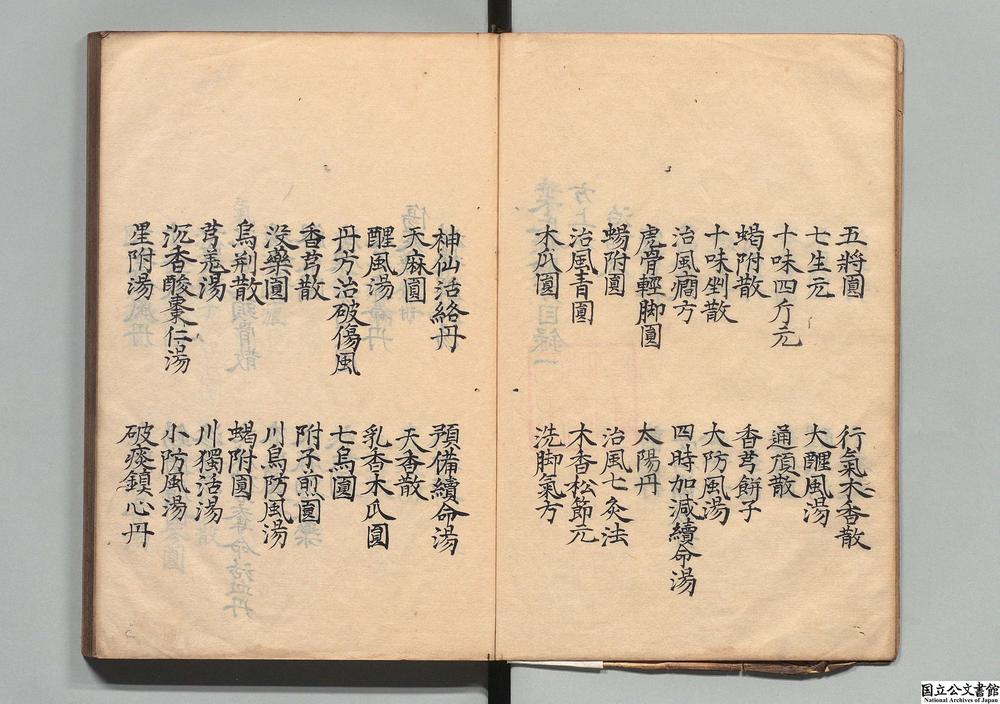 五將圓 行氣木香散
七生元 大醒風湯
十味四斤元 通頂散
蝎附散 香芎餅子
十味剉散 大防風湯
治風癇方 四時加減續命湯
虎骨輕脚圓 太陽丹
蝎附圓 治風七灸法
治風青圓 木香松節元
木瓜圓 洗脚氣方
神仙活絡丹 預備續命湯
天麻圓 天香散
醒風湯 乳香木瓜圓
丹方治破傷風 七烏圓
香芎散 附子煎圓
沒藥圓 川烏防風湯
烏荊散 蝎附圓
芎羌湯 川獨活湯
沉香酸棗仁湯 小防風湯
星附湯 破痰鎮心丹
国立公文書館
National Archives of Japan